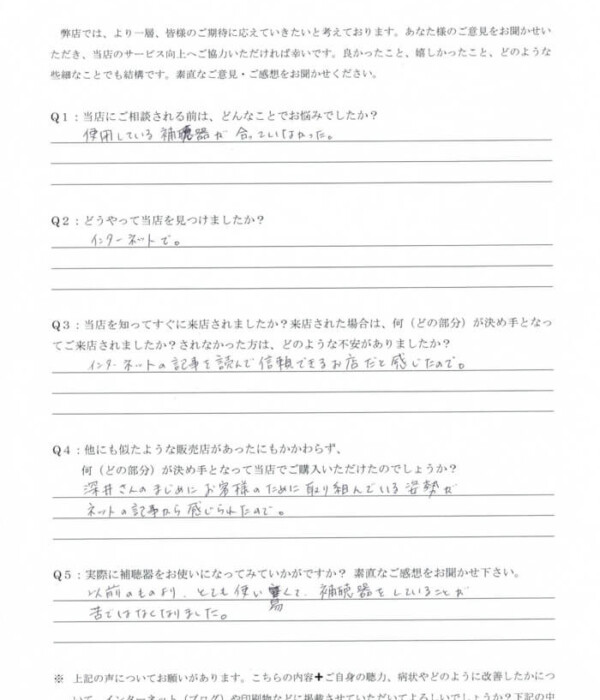 弊店では、より一層、皆様のご期待に応えていきたいと考えております。あなた様のご意見をお聞かせい
ただき、当店のサービス向上へご協力いただければ幸いです。良かったこと、嬉しかったこと、どのような
些細なことでも結構です。素直なご意見・ご感想をお聞かせください。
Q1：当店にご相談される前は、どんなことでお悩みでしたか？
使用している補聴器が合っていなかった。
Q2：どうやって当店を見つけましたか？
インターネットで。
Q3：当店を知ってすぐに来店されましたか？来店された場合は、何（どの部分）が決め手となっ
てご来店されましたか？されなかった方は、どのような不安がありましたか？
インターネットの記事を読んで信頼できるお店だと感じたので。
Q4：他にも似たような販売店があったにもかかわらず、
何（どの部分）が決め手となって当店でご購入いただけたのでしょうか？
深井さんのまじめにお客様のために取り組んでいる姿勢が
ネットの記事から感じられたので。
Q5：実際に補聴器をお使いになってみていかがですか？ 素直なご感想をお聞かせ下さい。
以前のものより、とても使い易くて、補聴器をしていることが
苦ではなくなりました。
※ 上記の声についてお願いがあります。こちらの内容+ご自身の聴力、病状やどのように改善したかにつ
いて、インターネット（ブログ）や印刷物などに掲載させていただいてよろしいでしょうか？下記の中